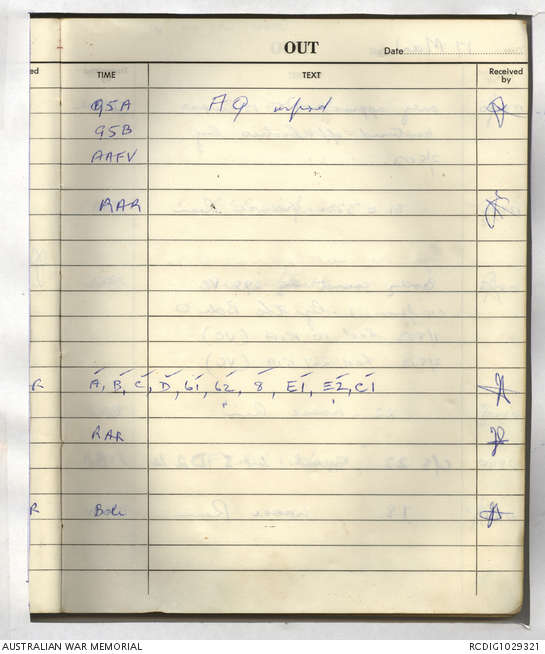 OUT
Date
ed TIME TEXT Received by
95A AQ infmd
95B
AAFV
RAR
R A, B, C, D, 61, 62, 8, E1, E2, C1
RAR
R Bde
AUSTRALIAN WAR MEMORIAL RCDIG1029321